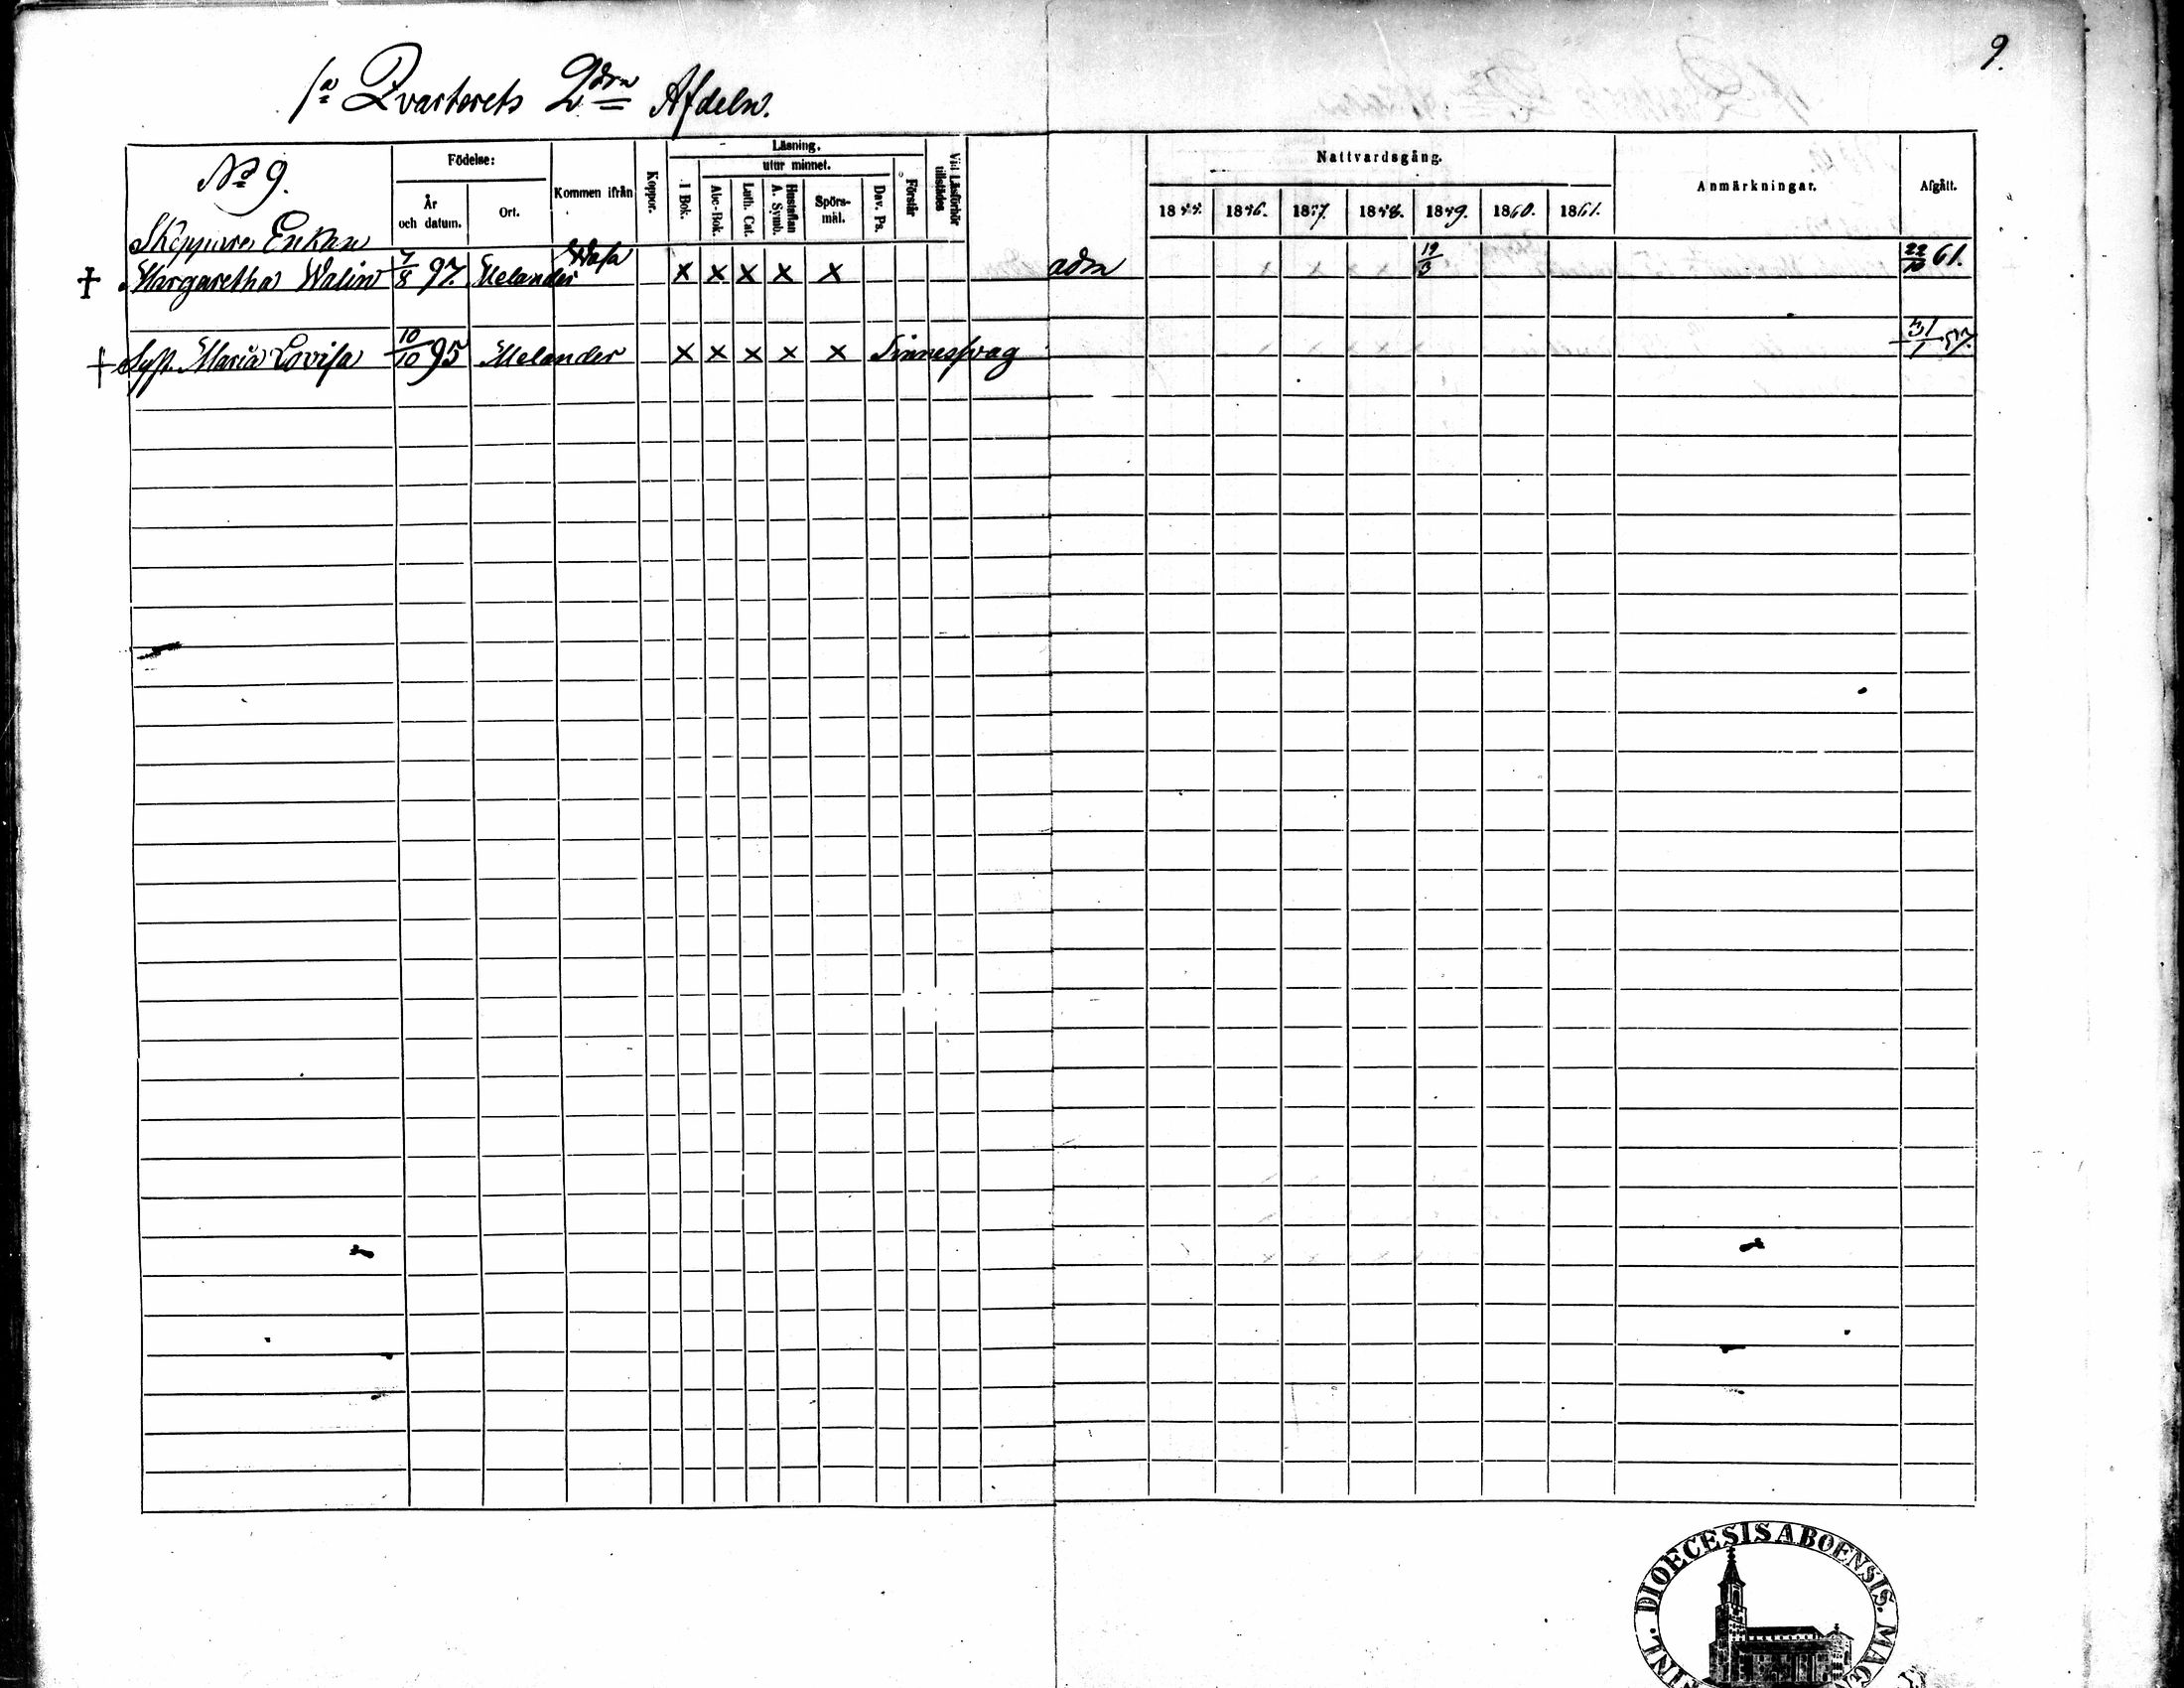 9.
1a Qvarterets 2dra Afdeln.
No 9.
Födelse:
År och datum.
Ort.
Kommen ifrån
Koppor.
Läsning.
I Bok.
utur minnet.
Abc-Bok.
Luth. Cat.
Hustaflan A. Symb.
Spörsmål.
Dav. Ps.
Förstår
Vid Läsförhör tillstädes
Nattvardsgång.
1855. 1856. 1857. 1858. 1859. 1860. 1861.
Anmärkningar.
Afgått.
Skeppare Enkan
Margaretha Walin 7/8 97. Melander Wasa × × × × × adm 19/3 22/10 61.
Syst. Maria Lovisa 10/10 95 Melander × × × × × Sinnessvag 31/1 57.
DIOECESIS ABOENSIS.